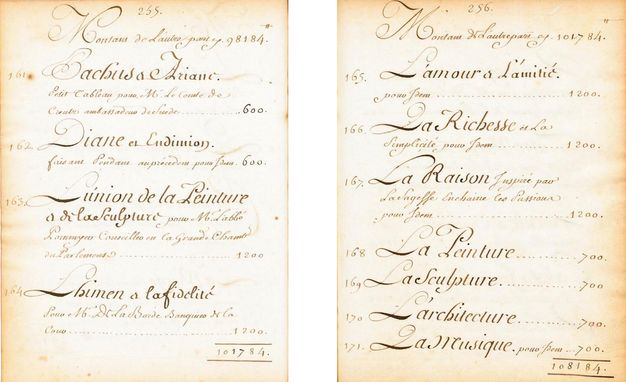 255.
Montant de l'autre part cy. 98184.
161. Bachus & Ariane.
Petit Tableau pour M. Le Comte de
Creutz ambassadeur de Suede ... 600.
162. Diane et Endimion.
faisant Pendant au precedent pour Idem. 600.
163. L'union de la Peinture
& de la Sculpture pour M. L'abbé
Pommyer Conseiller en la Grande Chambre
du Parlement ... 1200
164. L'himen & la fidelité
Pour M. De La Borde Banquier de la
Cour ... 1200.
101784.
256.
Montant de L'autre part cy. 101784.
165. L'amour & L'amitié.
pour Idem ... 1200.
166. La Richesse et La
Simplicité pour Idem ... 1200.
167. La Raison Inspirée par
La Sagesse Enchaine Les Passions
pour Idem ... 1200.
168 La Peinture ... 700.
169 La Sculpture ... 700.
170 L'architecture ... 700.
171. La Musique. pour Idem ... 700.
108184.